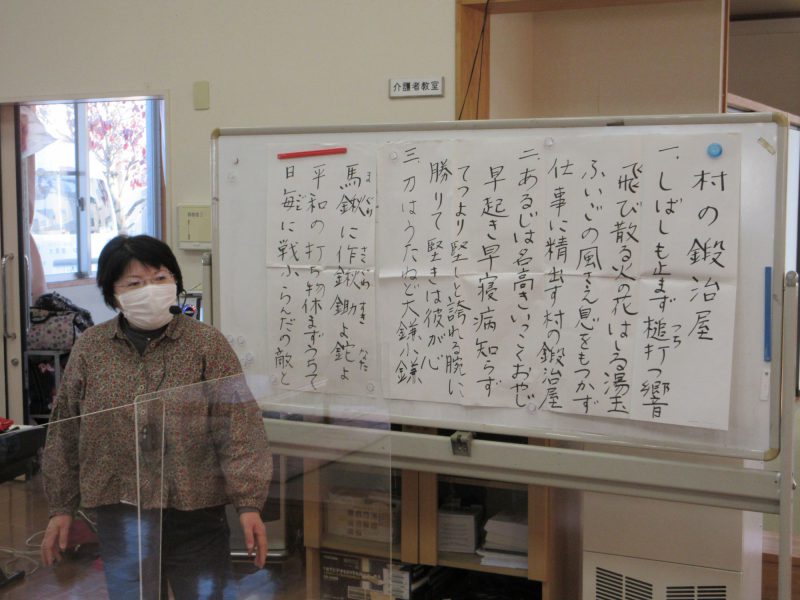 介護者教室
村の鍛冶屋
一、しばしも止まず槌打つ響
つち
飛び散る火の花はしる湯玉
ふいごの風さえ息をもつかず
仕事に精出す村の鍛冶屋
二、あるじは名高きいっこくおやじ
早起き早寝病知らず
てつより堅しと誇れる腕に、
勝りて堅きは彼が心
三、刀はうたねど大鎌小鎌
馬鍬に作鍬鋤よ鉈よ
まぐわ さくぐわ すき なた
平和の打ち物休まずうちて
日毎に戦ふらんだの敵と
ごと